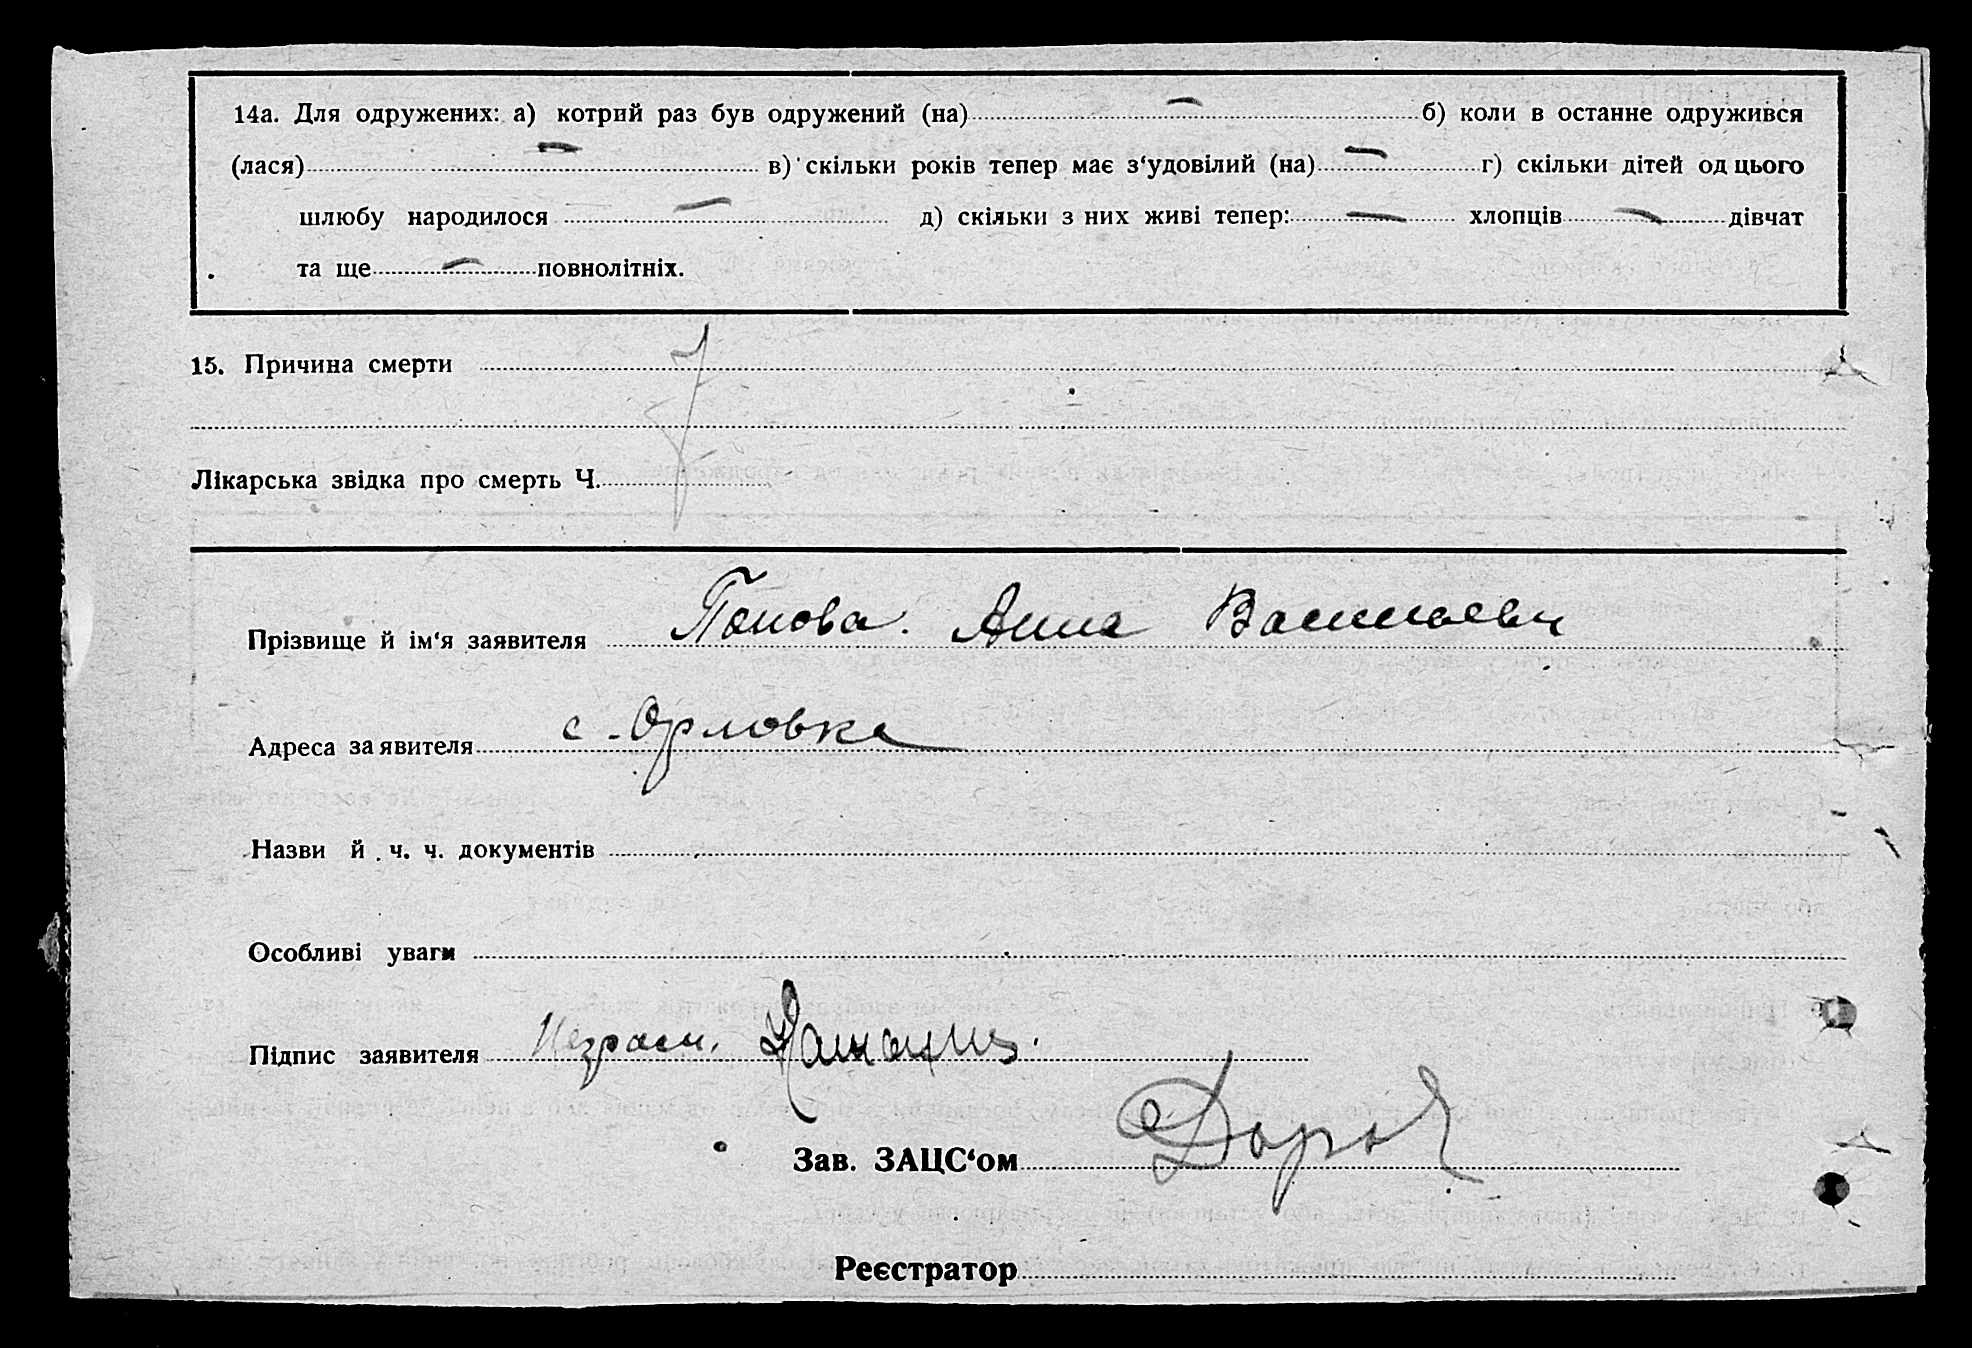 14а. Для одружених: а) котрий раз був одружений (на) — б) коли в останне одружився
(лася) — в) скільки років тепер має з‘удовілий (на) — г) скільки дітей од цього
шлюбу народилося — д) скільки з них живі тепер: — хлопців — дівчат
та ще — повнолітніх.
15. Причина смерти
Лікарська звідка про смерть Ч.
Прізвище й ім‘я заявителя Попова Анна Васильевн
Адреса заявителя с. Орловка
Назви й ч. ч. документів
Особливі уваги
Підпис заявителя Неграм.
Зав. ЗАЦС‘ом
Реєстратор